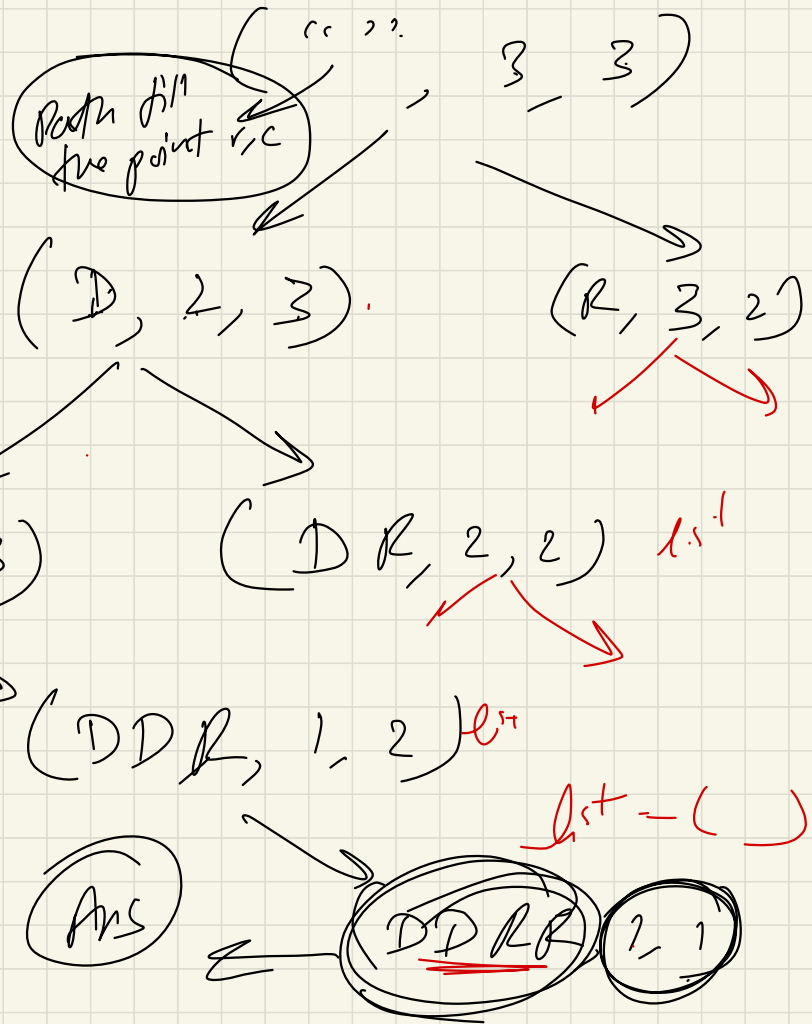 ( " " , 3, 3)
Path till
the point r,c
(D, 2, 3)
(R, 3, 2)
3)
(DR, 2, 2) list
(DDR, 1, 2) list
list = ( )
Ans
DDRR 1, 1